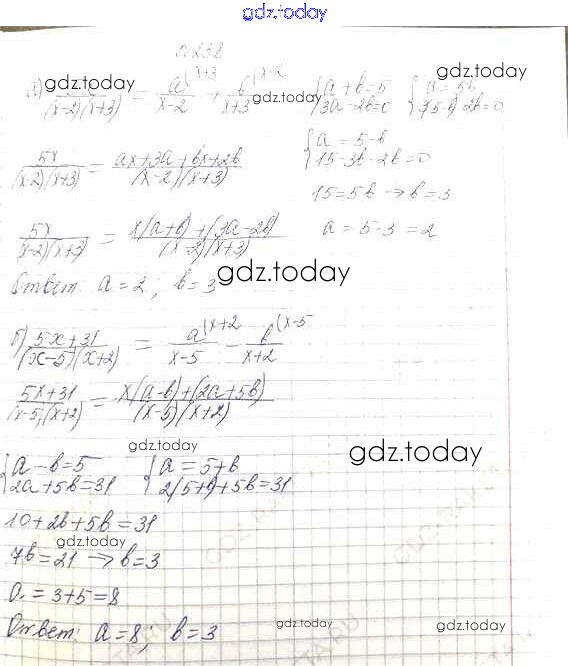 gdz.today
n 238
а) 5x/(x-2)(x+3) = a^(x+3/x-2 + b^(x-2/x+3
gdz.today
gdz.today
{a+b=5 {a=5-b
{3a-2b=0 3(5-b)-2b=0
5x/(x-2)(x+3) = ax+3a+bx+2b/(x-2)(x+3)
{a=5-b
{15-3b-2b=0
15=5b → b=3
5x/(x-2)(x+3) = x(a+b)+(3a-2b)/(x-2)(x+3)
a=5-3=2
Ответ: a=2; b=3
gdz.today
б) 5x+31/(x-5)(x+2) = a^(x+2/x-5 - b^(x-5/x+2
5x+31/(x-5)(x+2) = x(a-b)+(2a+5b)/(x-5)(x+2)
gdz.today
gdz.today
{a-b=5 {a=5+b
{2a+5b=31 2(5+b)+5b=31
10+2b+5b=31
gdz.today
7b=21 → b=3
a=3+5=8
Ответ: a=8; b=3
gdz.today
gdz.today